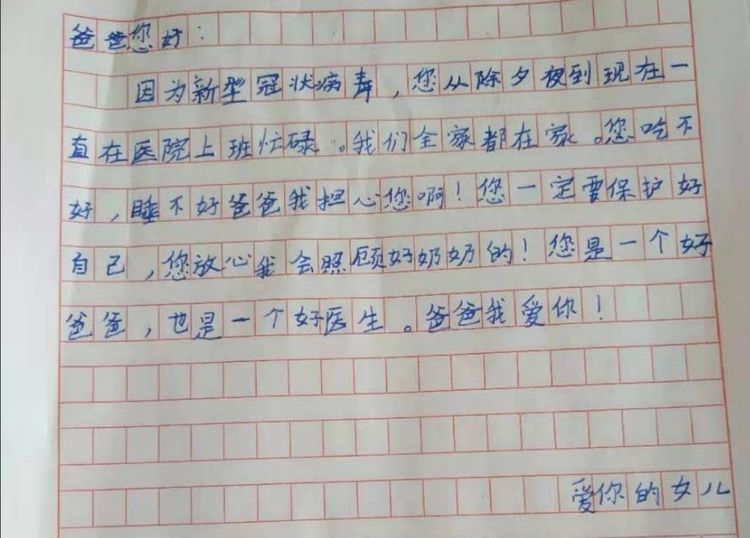 爸爸您好：
因为新型冠状病毒，您从除夕夜到现在一
直在医院上班忙碌。我们全家都在家。您吃不
好，睡不好爸爸我担心您啊！您一定要保护好
自己，您放心我会照顾好奶奶的！您是一个好
爸爸，也是一个好医生。爸爸我爱你！
爱你的女儿